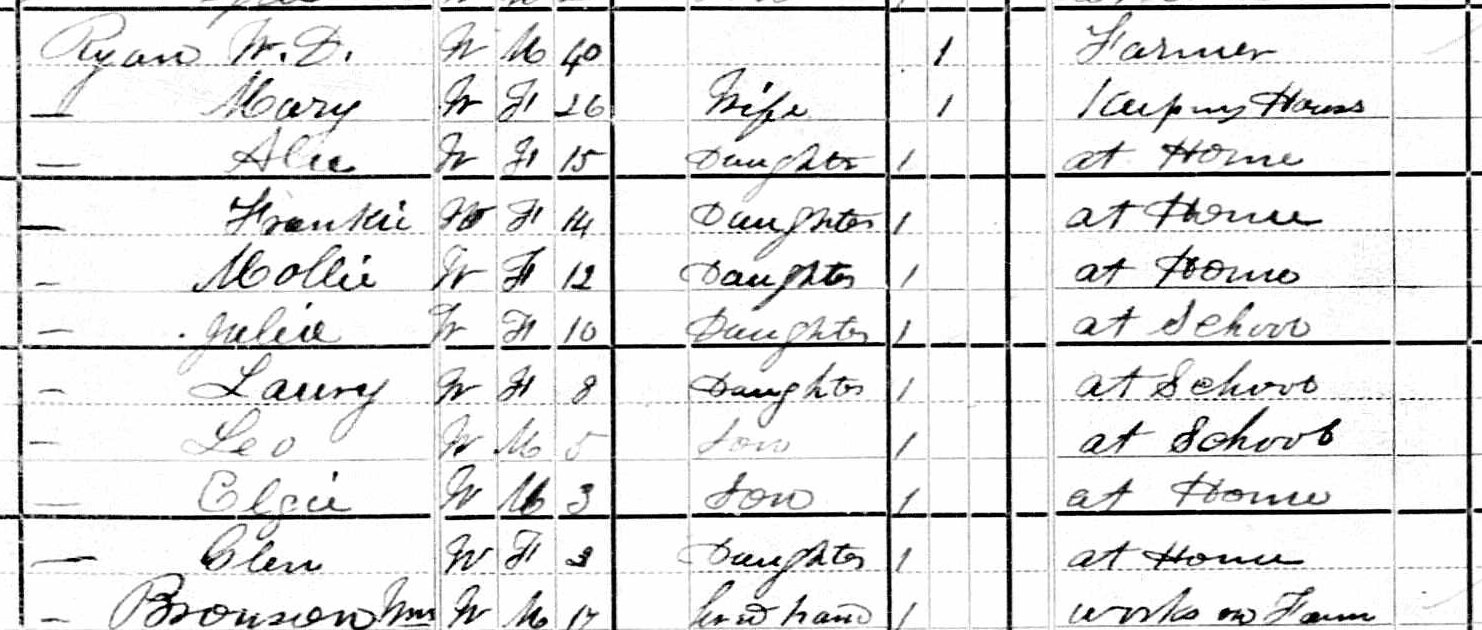 Ryan W. D. W M 40 1 Farmer
— Mary W F 26 Wife 1 Keeping House
— W F 15 Daughter 1 at Home
— Frankie W F 14 Daughter 1 at Home
— Mollie W F 12 Daughter 1 at Home
— Julia W F 10 Daughter 1 at School
— Laury W F 8 Daughter 1 at School
— Leo W M 5 Son 1 at School
— Elgie W M 3 Son 1 at Home
— Glen W F 3 Daughter 1 at Home
— Bronson Wm W M 17 hand 1 works on Farm